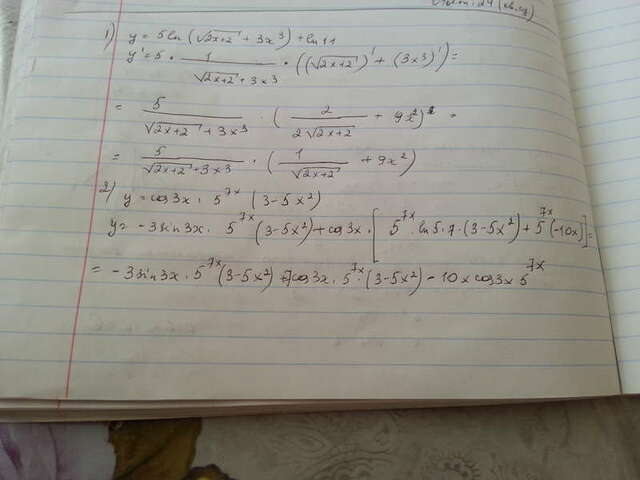 Ответ: 24 (кв.ед)
1) y = 5 ln (√2x+2 + 3x³) + ln 11
y' = 5 · 1/(√2x+2 + 3x³) · ((√2x+2)' + (3x³)') =
= 5/(√2x+2 + 3x³) · (2/(2√2x+2) + 9x²) =
= 5/(√2x+2 + 3x³) · (1/√2x+2 + 9x²)
2) y = cos3x · 5^7x (3-5x²)
y = -3sin3x · 5^7x (3-5x²) + cos3x · [5^7x · ln5·7·(3-5x²) + 5^7x (-10x)] =
= -3sin3x · 5^7x (3-5x²) + 7cos3x · 5^7x · (3-5x²) - 10x cos3x 5^7x